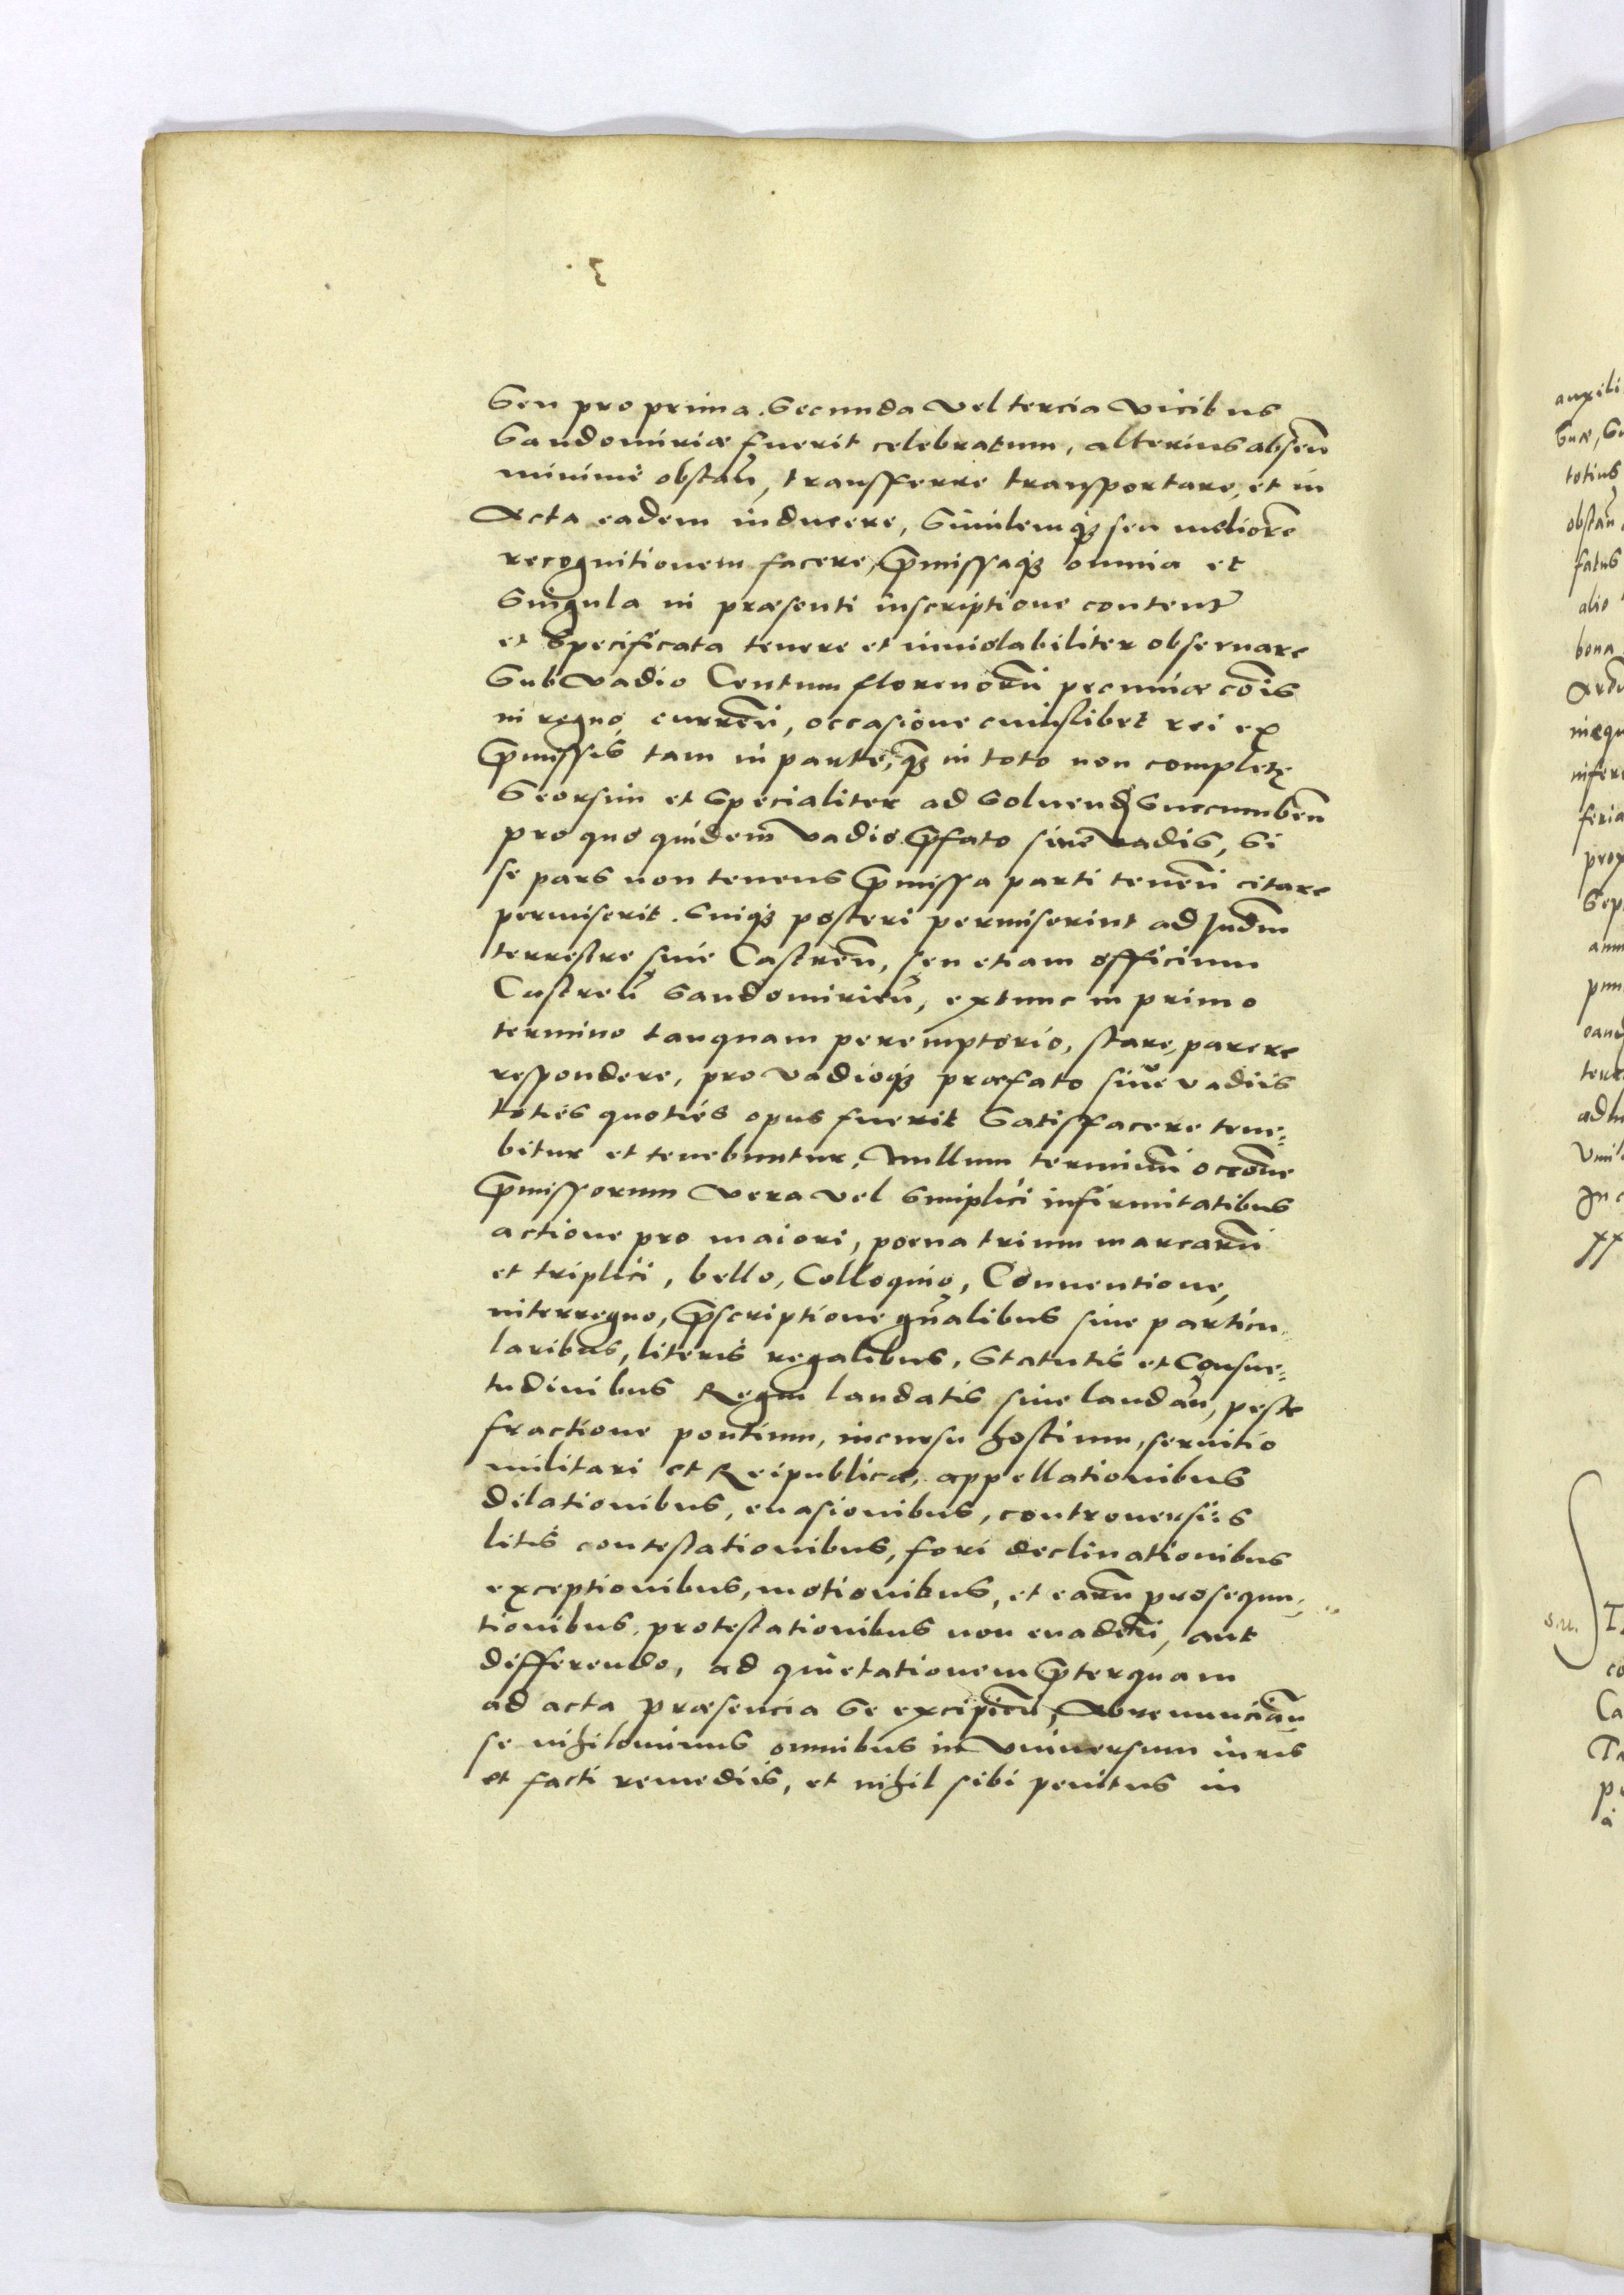 Seu pro prima. Secunda Vel tercia Vicibus
Sandomiriæ fuerit celebratum, alterius absen̄
minimè obstan̄, transferre transportare, et in
Acta eadem inducere, Similemq́ꝫ seu meliorē
recognitionem facere, p̄missaq́ꝫ omnia et
Singula in præsenti inscriptione content̃
et Specificata tenere et inuiolabiliter obseruare
Sub Vadio Centum florenorū pecuniæ cōis
in regno currēn, occasione cuiuslibet rei ex
p̄missis tam in parte, q̄ꝫ in toto non completę
Seorsim et Specialiter ad Soluend Succumben̄
pro quo quidem Vadio p̄fato siue Vadiis, Si
se pars non tenens p̄missa parti tenēn citare
permiserit. Suiq́ꝫ posteri permiserint ad Judm̄
terrestre siue Castrēn, seu etiam officium
Castren̄ Sandomirien̄, extunc in primo
termino tanquam peremptorio, stare, parere
respondere, pro Vadioq́ꝫ præfato siue vadiis
toties quoties opus fuerit Satisfacere tene=
bitur et tenebuntur, Nullum terminū occōne
p̄missorum Vera vel Simplici infirmitatibus
actione pro maiori, poena trium marcarū
et triplici, bello, Colloquio, Conuentione,
interregno, p̄scriptione gn̄alibus siue particu=
laribus, literis regalibus, Statutis et Consue=
tudinibus Regni laudatis siue laudan̄, peste
fractione pontium, incursu hostium, seruitio
militari et Reipublicæ, appellationibus
dilationibus, euasionibus, controuersiis
litis contestationibus, fori declinationibus
exceptionibus, motionibus, et earū prosequu=
tionibus, protestationibus non euadēn, aut
differendo, ad quietationem p̄terquam
ad acta præsencia Se excipien̄, Abrenuncian̄
se nihilominus omnibus in Vniuersum iuris
et facti remediis, et nihil sibi penitus in